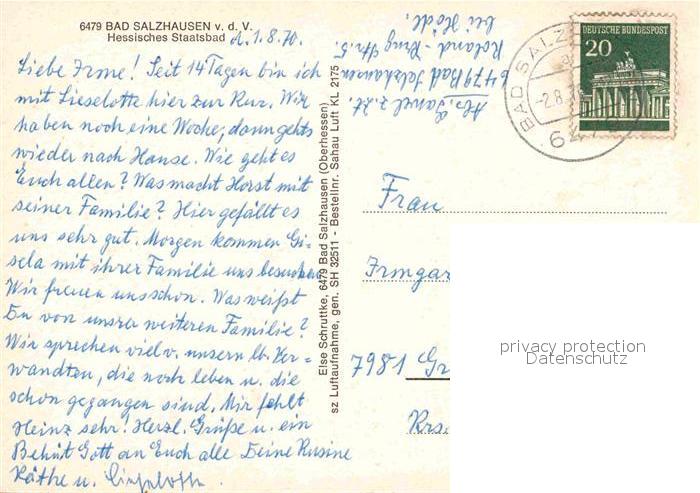 6479 BAD SALZHAUSEN v. d. V.
Hessisches Staatsbad
d. 1.8.70.
Liebe Irme! Seit 14 Tagen bin ich
mit Lieselotte hier zur Kur. Wir
haben noch eine Woche, dann gehts
wieder nach Hause. Wie geht es
Euch allen? Was macht Horst mit
seiner Familie? Hier gefällt es
uns sehr gut. Morgen kommen Gi-
sela mit ihrer Familie uns besuchen.
Wir freuen uns schon. Was weißt
Du von unsrer weiteren Familie?
Wir sprechen viel v. unsern lb. Ver-
wandten, die noch leben u. die
schon gegangen sind. Mir fehlt
Heinz sehr! Herzl. Grüße u. ein
Behüt Gott an Euch alle Deine Kusine
Käthe u. Lieselotte.
Else Schruttke, 6479 Bad Salzhausen (Oberhessen)
sz Luftaufnahme, gen. SH 32511 - Bestellnr. Sahau Luft KL 2175
Abs. z. Zt.
6479 Bad Salzhausen
Roland-Krug Str. 5.
bei
BAD SALZ
-2.8.
647
DEUTSCHE BUNDESPOST
20
Frau
Irmgar
7981 Gr
Krs.
privacy protection
Datenschutz